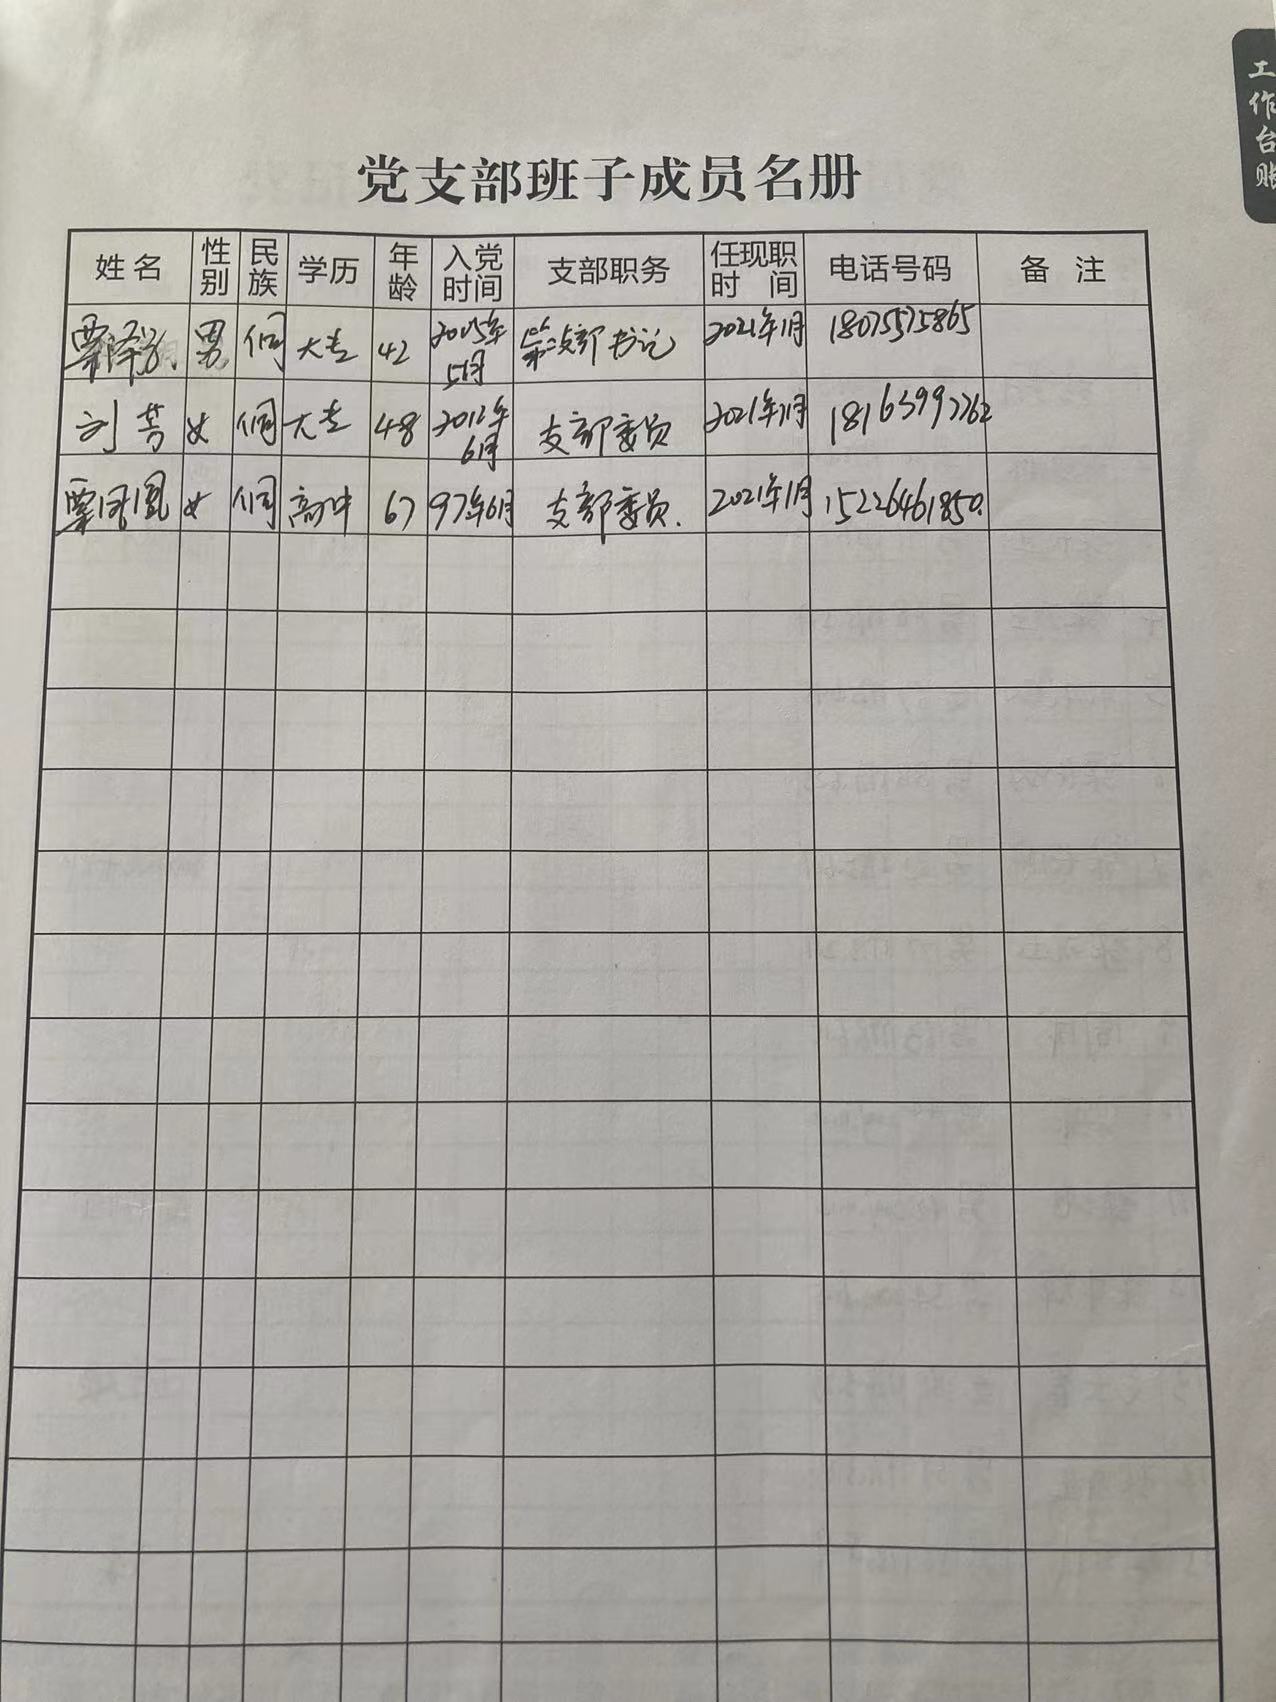 工作台账
党支部班子成员名册
姓名 性别 民族 学历 年龄 入党时间 支部职务 任现职时间 电话号码 备注
男 侗 大专 42 5月 支部书记 2021年1月 18075575865
刘芳 女 侗 大专 48 2012年6月 支部委员 2021年1月
覃凤凰 女 侗 高中 67 97年6月 支部委员. 2021年1月 15226461850.